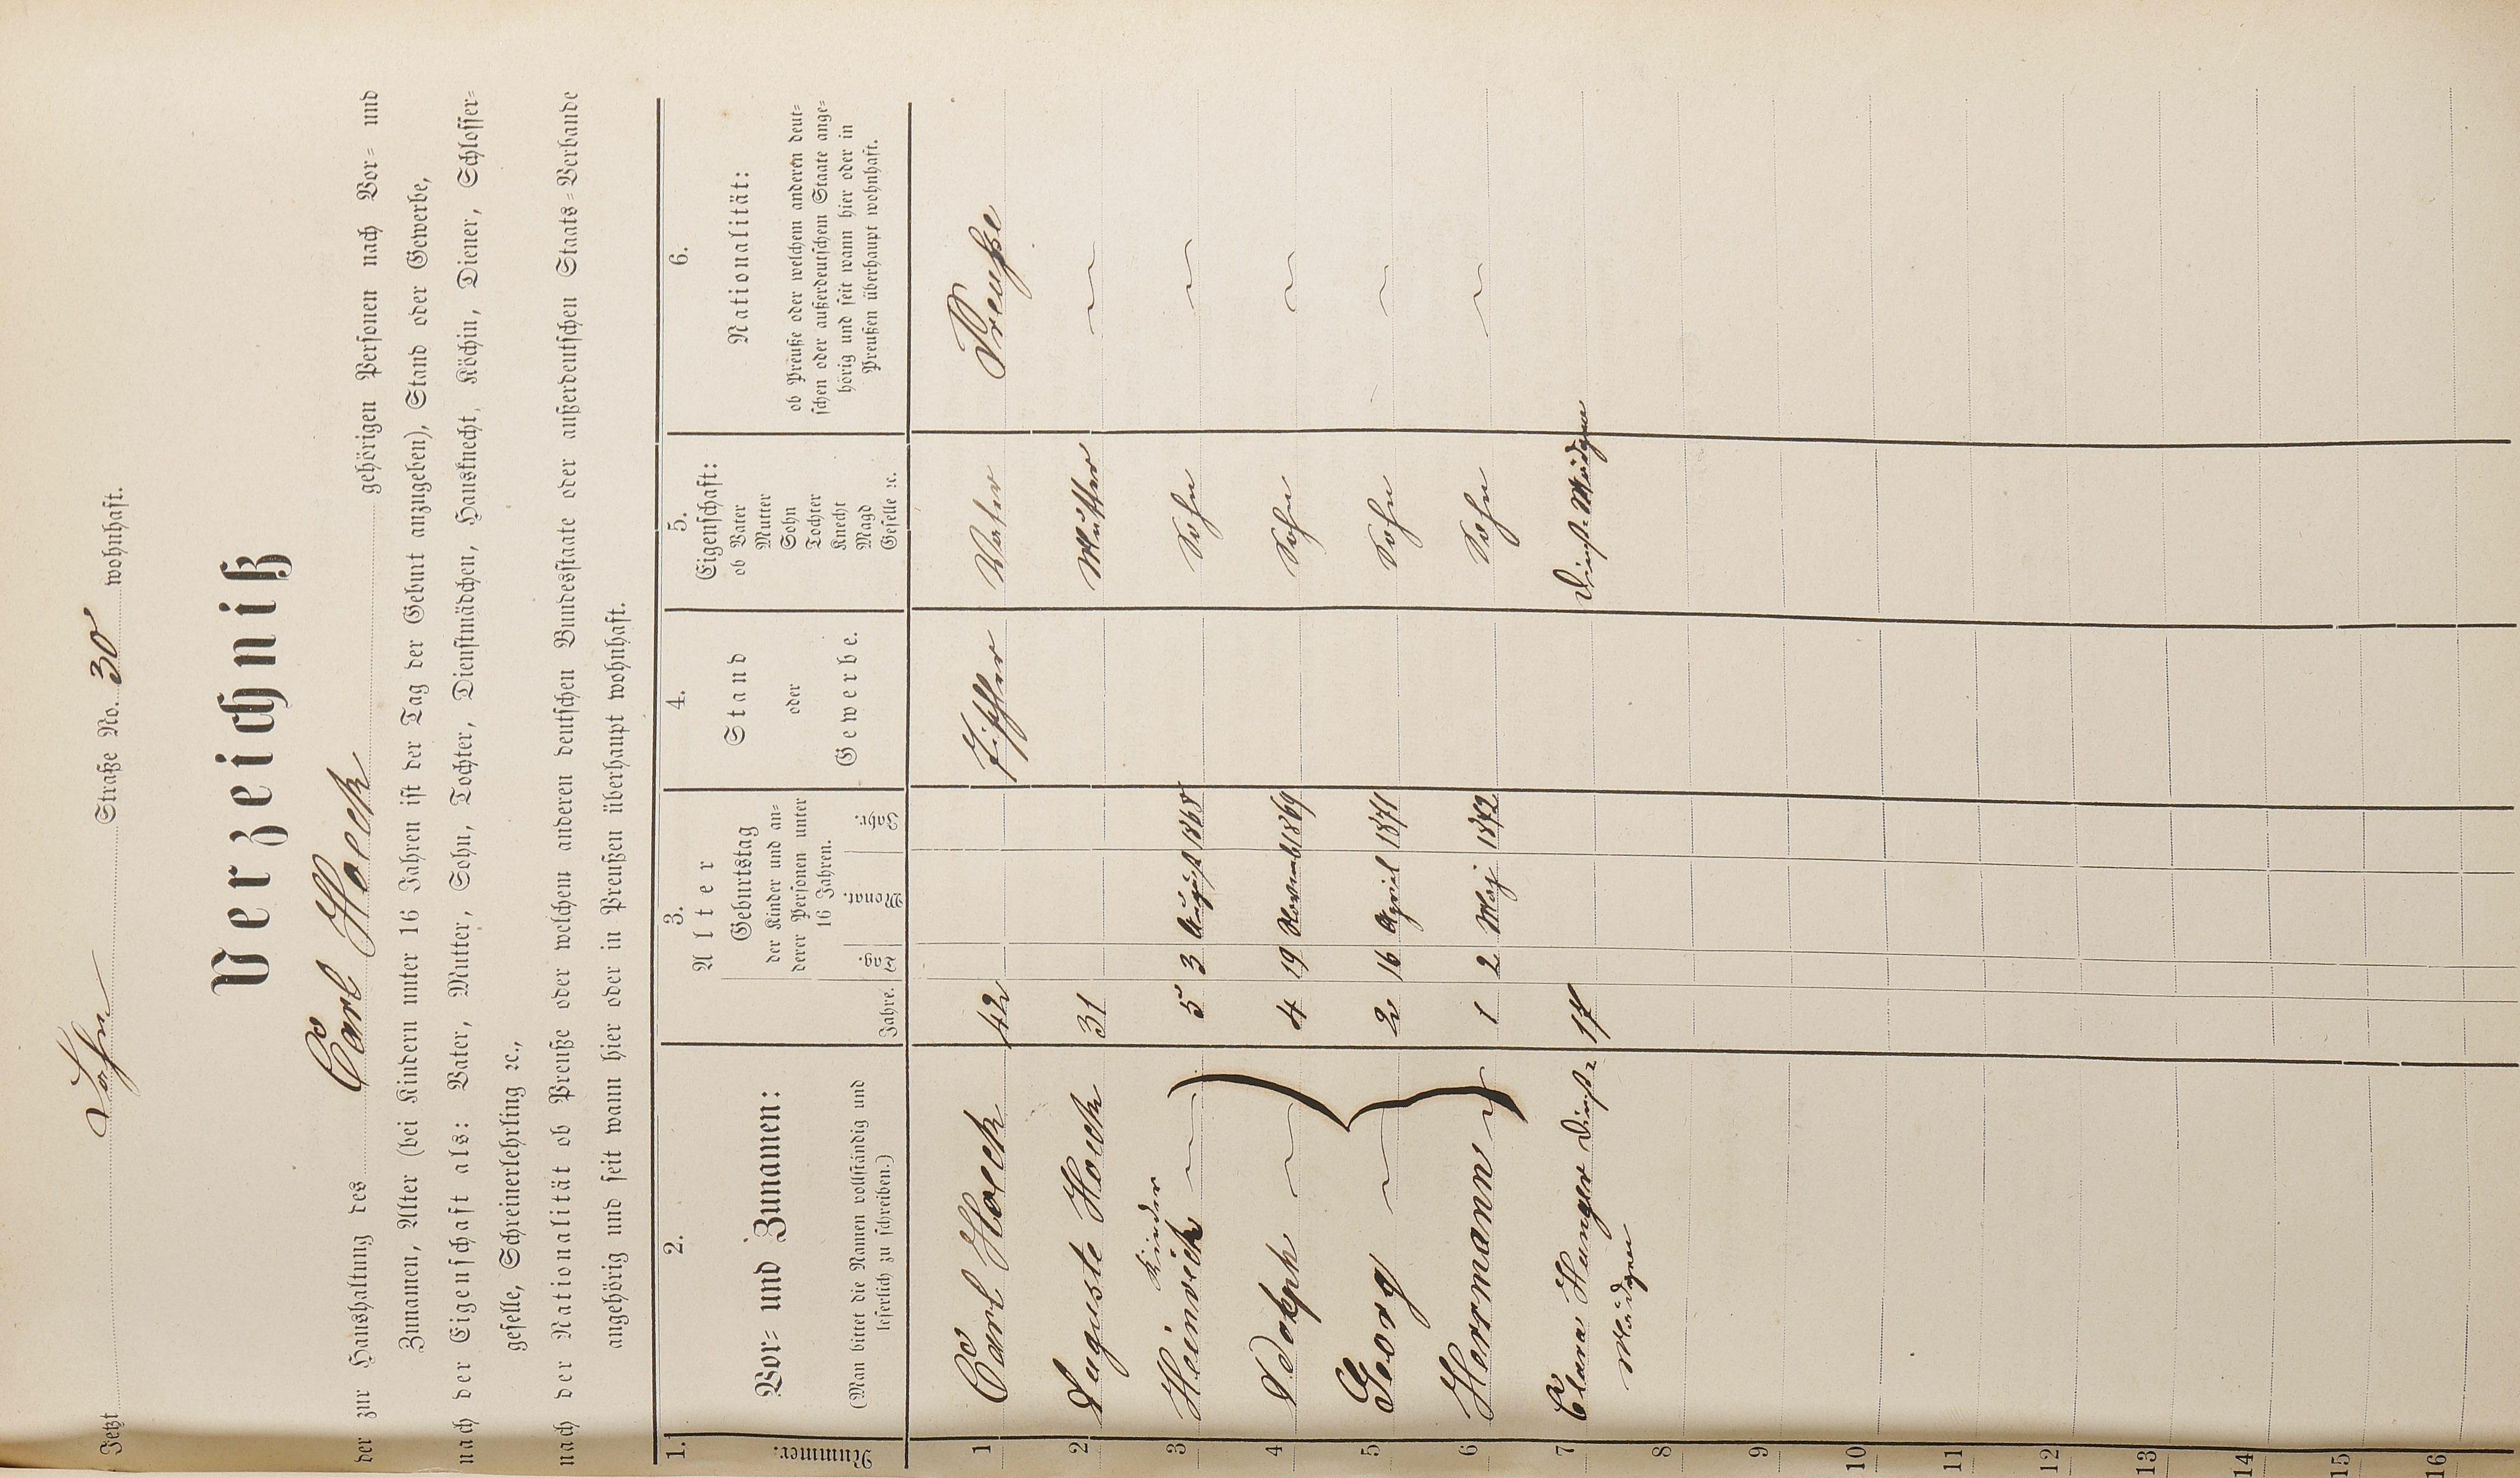 Jetzt Lahn Straße No. 30 wohnhaft.
Verzeichniß
der zur Haushaltung des Carl Hoeck gehörigen Personen nach Vor- und
Zunamen, Alter (bei Kindern unter 16 Jahren ist der Tag der Geburt anzugeben), Stand oder Gewerbe,
nach der Eigenschaft als: Vater, Mutter, Sohn, Tochter, Dienstmädchen, Hausknecht, Köchin, Diener, Schlosser-
geselle, Schreinerlehrling ꝛc.,
nach der Nationalität ob Preuße oder welchem anderen deutschen Bundesstaate oder außerdeutschen Staats-Verbande
angehörig und seit wann hier oder in Preußen überhaupt wohnhaft.
1. 2. 3. 4. 5. 6.
Nummer.
Vor- und Zunamen:
(Man bittet die Namen vollständig und
leserlich zu schreiben.)
Alter
Jahre.
Geburtstag
der Kinder und an-
derer Personen unter
16 Jahren.
Tag. Monat. Jahr.
Stand
oder
Gewerbe.
Eigenschaft:
ob Vater
Mutter
Sohn
Tochter
Knecht
Magd
Geselle ꝛc.
Nationalität:
ob Preuße oder welchem anderen deut-
schen oder außerdeutschen Staate ange-
hörig und seit wann hier oder in
Preußen überhaupt wohnhaft.
1 Carl Hoeck 42 Tischler Vater Preuße
2 Auguste Hoeck 31 Mutter
Kinder
3 Heinrich 5 3 August 1868 Sohn
4 Adolph 4 19 Novemb 1869 Sohn
5 Georg 2 16 April 1871 Sohn
6 Herrmann 1 2 Maj 1872 Sohn
7 Clara Hunger Dienst- 17 Dienst-Mädgen
Mädgen
8
9
10
11
12
13
14
15
16